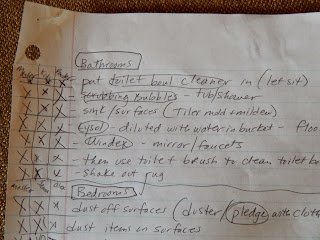 Bathrooms
X X X put toilet bowl cleaner in (let sit)
X X X Scrubbing Bubbles - tub/shower
X X X sink/surfaces (Tilex mold + mildew)
X X X Lysol - diluted with water in bucket - floo
X X X - Windex - mirror/faucets
X X X - then use toilet brush to clean toilet bo
X X - Shake out rug
Bedrooms
X X X dust off surfaces (duster/pledge with cloth
X X X dust items on surfaces